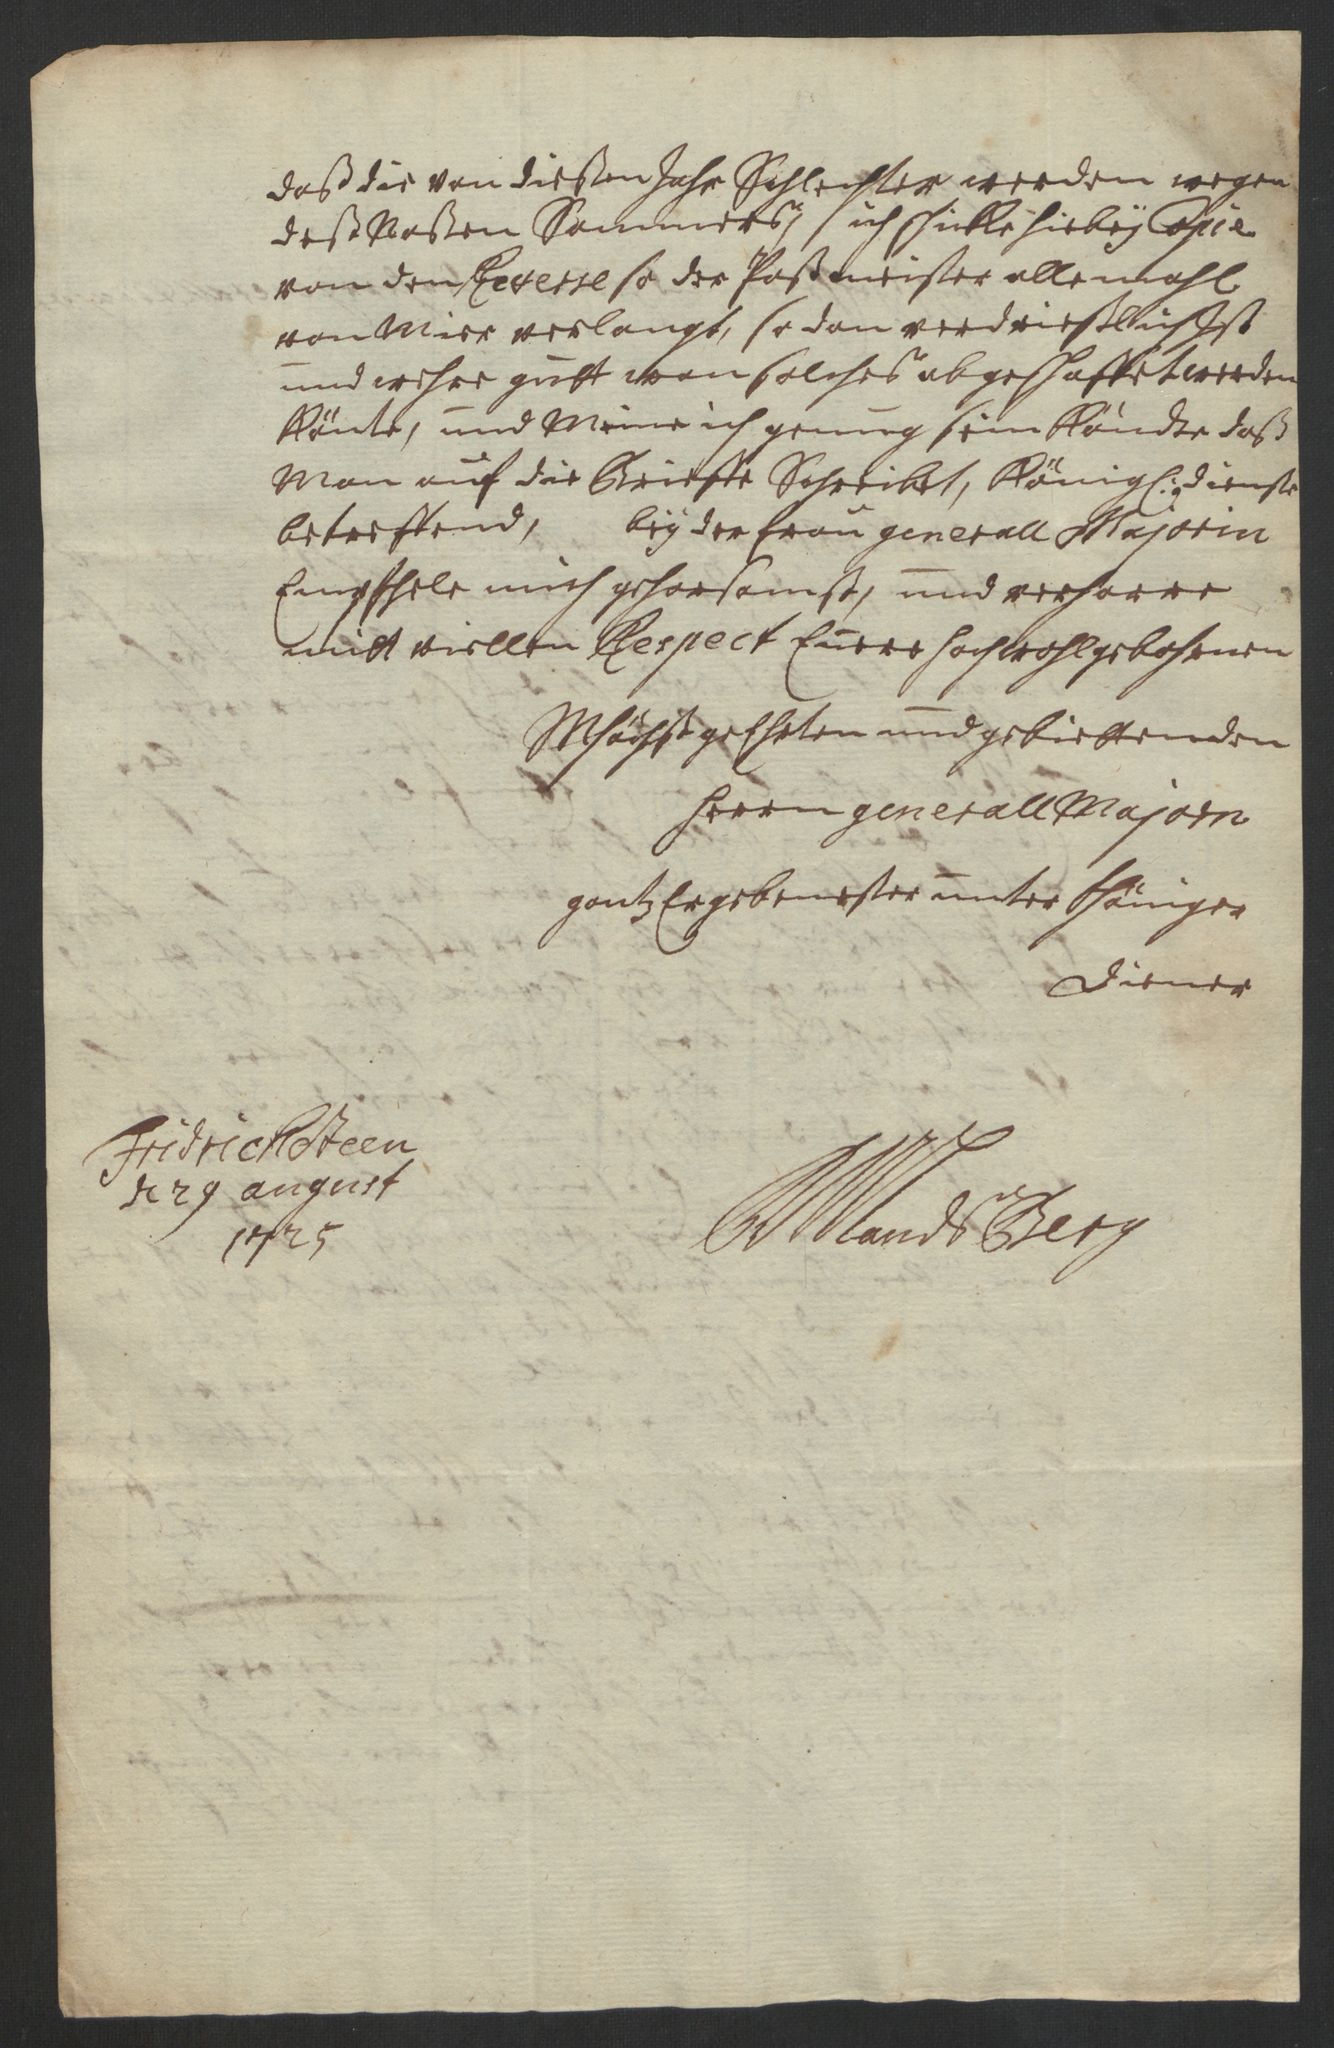 daß die von dießen Jahr Schlechter werden wegen
deß Naßen Sommers, ich schicke hiebeÿ Copie
von den Reverse so der Postmeister allemahl
von Mier verlangt, so dan verdrießlich Ist
und wehre gutt wan solches abgeschaffet werden
Könte, und Meine ich genung sein Köndte daß
Man auf die Brieffe Schreibet, Königl: dienste
betreffend, beÿ der Frau generall Majorin
Empfhele mich gehorsamst, und verharre
mitt viellen Respect Euere hochwohlgebohrnen
Mhöchst geEhrten und gebiettenden
herrn generall Majorn
gantz Ergebenester unter thäniger
Diener
Fridrichsteen
d 29 august
1725
Landsberg